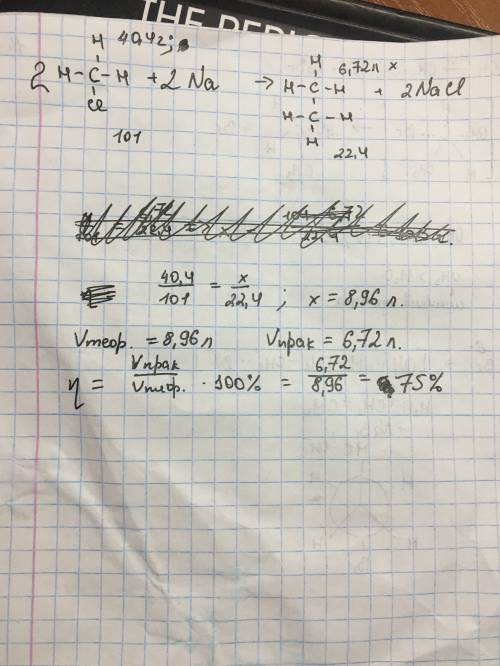 THE PERIO
40,4г;
6,72л x
H H
2 H-C-H + 2 Na → H-C-H + 2NaCl
Cl H-C-H
H
101 22,4
40,4/101 = x/22,4 ; x = 8,96 л.
Vтеор. = 8,96 л Vпрак = 6,72 л.
η = Vпрак/Vтеор. · 100% = 6,72/8,96 = 75%